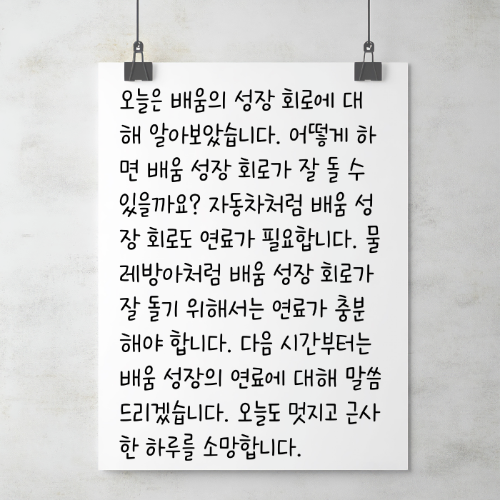 오늘은 배움의 성장 회로에 대
해 알아보았습니다. 어떻게 하
면 배움 성장 회로가 잘 돌 수
있을까요? 자동차처럼 배움 성
장 회로도 연료가 필요합니다. 물
레방아처럼 배움 성장 회로가
잘 돌기 위해서는 연료가 충분
해야 합니다. 다음 시간부터는
배움 성장의 연료에 대해 말씀
드리겠습니다. 오늘도 멋지고 근사
한 하루를 소망합니다.